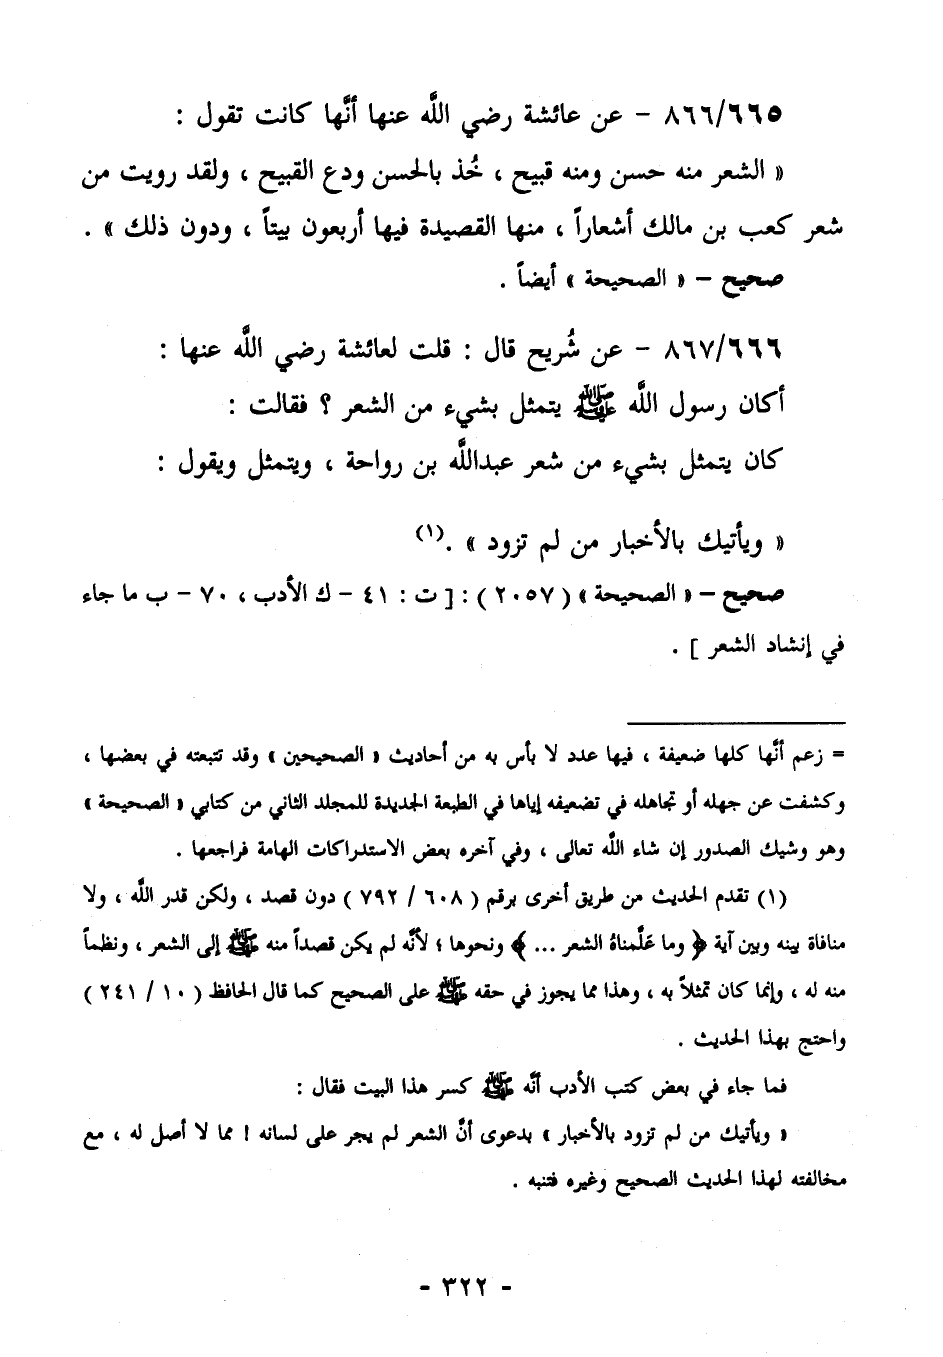 ٨٦٦/٦٦٥ - عن عائشة رضي اللَّه عنها أنَّها كانت تقول :
« الشعر منه حسن ومنه قبيح ، خُذ بالحسن ودع القبيح ، ولقد رويت من
شعر كعب بن مالك أشعاراً ، منها القصيدة فيها أربعون بيتاً ، ودون ذلك » .
صحيح - « الصحيحة » أيضاً .
٨٦٧/٦٦٦ - عن شُريح قال : قلت لعائشة رضي اللَّه عنها :
أكان رسول اللَّه ﷺ يتمثل بشيء من الشعر ؟ فقالت :
كان يتمثل بشيء من شعر عبداللَّه بن رواحة ، ويتمثل ويقول :
« ويأتيك بالأخبار من لم تزود » .(١)
صحيح - « الصحيحة » ( ٢٠٥٧ ) : [ ت : ٤١ - ك الأدب ، ٧٠ - ب ما جاء
في إنشاد الشعر ] .
= زعم أنَّها كلها ضعيفة ، فيها عدد لا بأس به من أحاديث « الصحيحين » وقد تتبعته في بعضها ،
وكشفت عن جهله أو تجاهله في تضعيفه إياها في الطبعة الجديدة للمجلد الثاني من كتابي « الصحيحة »
وهو وشيك الصدور إن شاء اللَّه تعالى ، وفي آخره بعض الاستدراكات الهامة فراجعها .
(١) تقدم الحديث من طريق أخرى برقم ( ٦٠٨ / ٧٩٢ ) دون قصد ، ولكن قدر اللَّه ، ولا
منافاة بينه وبين آية ﴿ وما عَلَّمناهُ الشعر ... ﴾ ونحوها ؛ لأنَّه لم يكن قصداً منه ﷺ إلى الشعر ، ونظماً
منه له ، وإنما كان تمثلاً به ، وهذا مما يجوز في حقه ﷺ على الصحيح كما قال الحافظ ( ١٠ / ٢٤١ )
واحتج بهذا الحديث .
فما جاء في بعض كتب الأدب أنَّه ﷺ كسر هذا البيت فقال :
« ويأتيك من لم تزود بالأخبار » بدعوى أنَّ الشعر لم يجر على لسانه ! مما لا أصل له ، مع
مخالفته لهذا الحديث الصحيح وغيره فتنبه .
- ٣٢٢ -